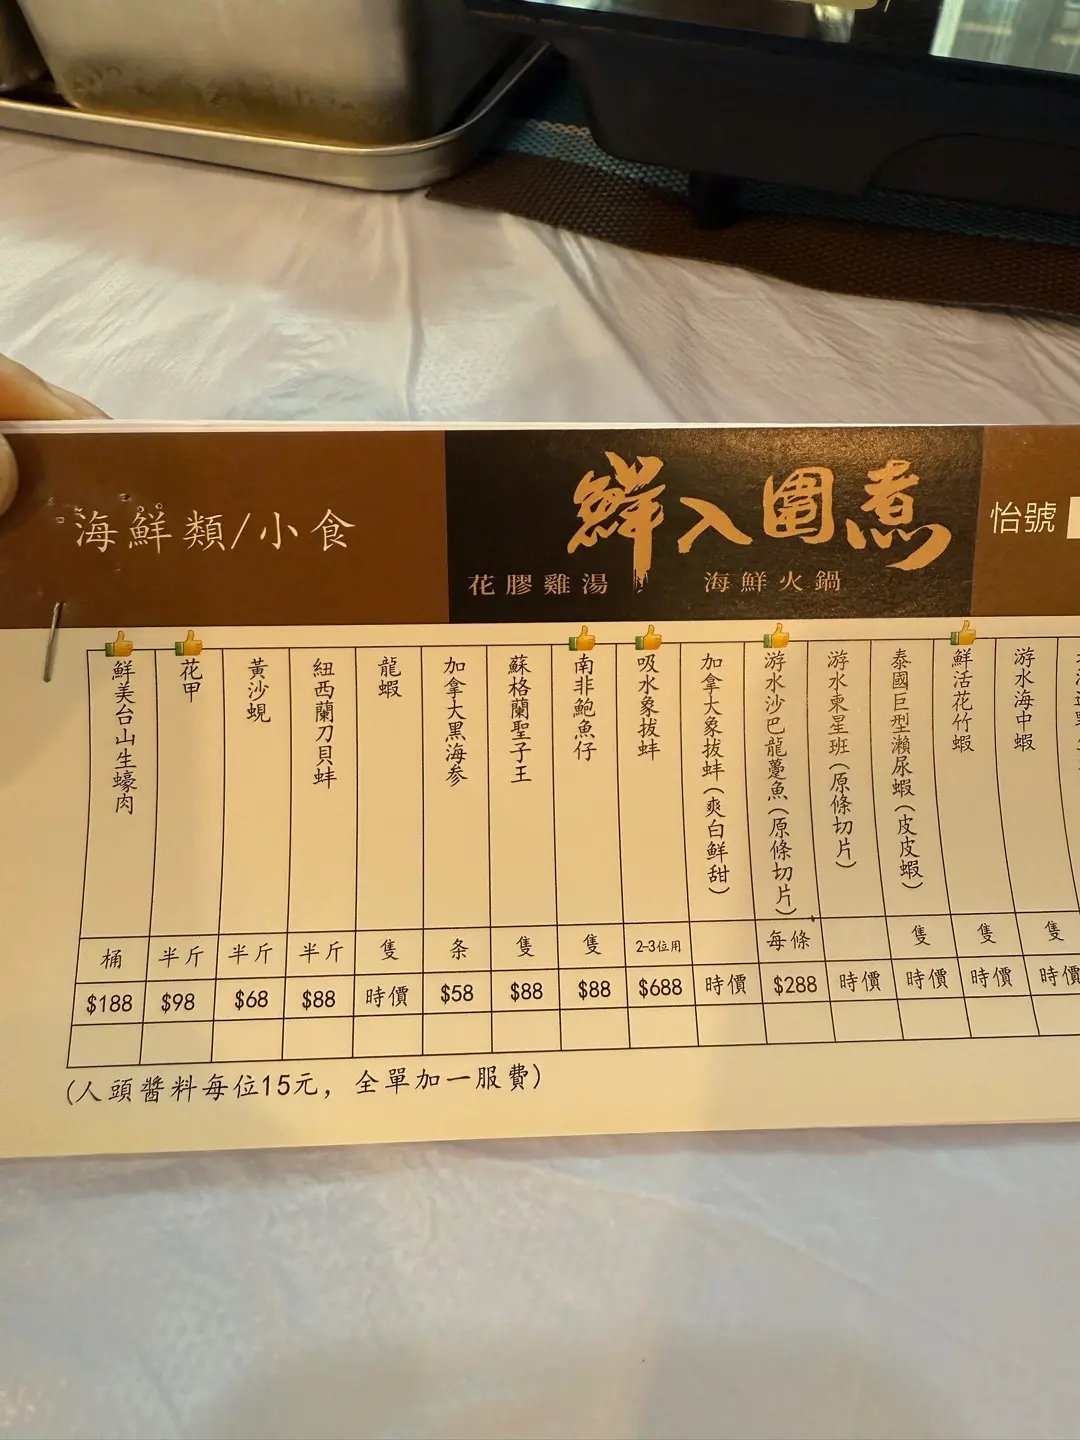 海鮮類/小食
鮮入圍煮
花膠雞湯 海鮮火鍋
怡號
鮮美台山生蠔肉
桶
$188
花甲
半斤
$98
黃沙蜆
半斤
$68
紐西蘭刀貝蚌
半斤
$88
龍蝦
隻
時價
加拿大黑海参
条
$58
蘇格蘭聖子王
隻
$88
南非鮑魚仔
隻
$88
吸水象拔蚌
2-3位用
$688
加拿大象拔蚌(爽白鮮甜)
時價
游水沙巴龍躉魚(原條切片)
每條
$288
游水東星班(原條切片)
時價
泰國巨型瀨尿蝦(皮皮蝦)
隻
時價
鮮活花竹蝦
隻
時價
游水海中蝦
隻
時價
(人頭醬料每位15元，全單加一服費)